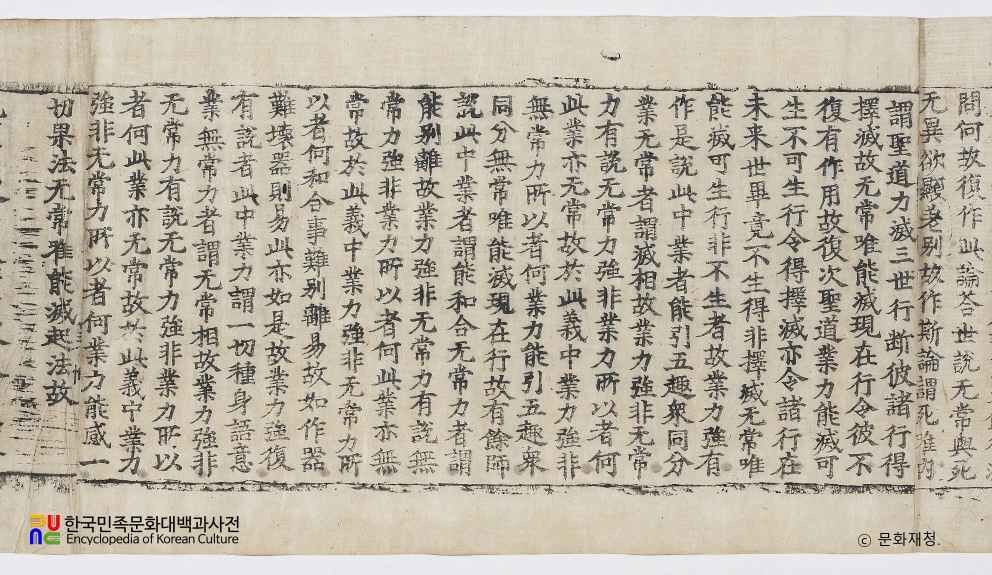 間何故復作此論荅世說无常與死
无異欲顯差別故作斯論謂死唯內
謂聖道力滅三世行断彼諸行得
擇滅故无常唯能滅現在行令彼不
復有作用故復次聖道業力能滅可
生不可生行令得擇滅亦令諸行在
未来世畢竟不生得非擇滅无常唯
能滅可生行非不生者故業力強有
作是說此中業者能引五趣衆同分
業无常者謂滅相故業力強非无常
力有說无常力強非業力所以者何
此業亦无常故於此義中業力強非
無常力所以者何業力能引五趣衆
同分無常唯能滅現在行故有餘師
說此中業者謂能和合无常力者謂
能別離故業力強非无常力有說無
常力強非業力所以者何此業亦無
常故於此義中業力強非无常力所
以者何和合事難別離易故如作器
難壞器則易此亦如是故業力強復
有說者此中業力謂一切種身語意
業無常力者謂无常相故業力強非
无常力有說无常力強非業力所以
者何此業亦无常故於此義中業力
強非无常力所以者何業力能感一
切果法无常唯能滅起法故
한국민족문화대백과사전
Encyclopedia of Korean Culture
© 문화재청.